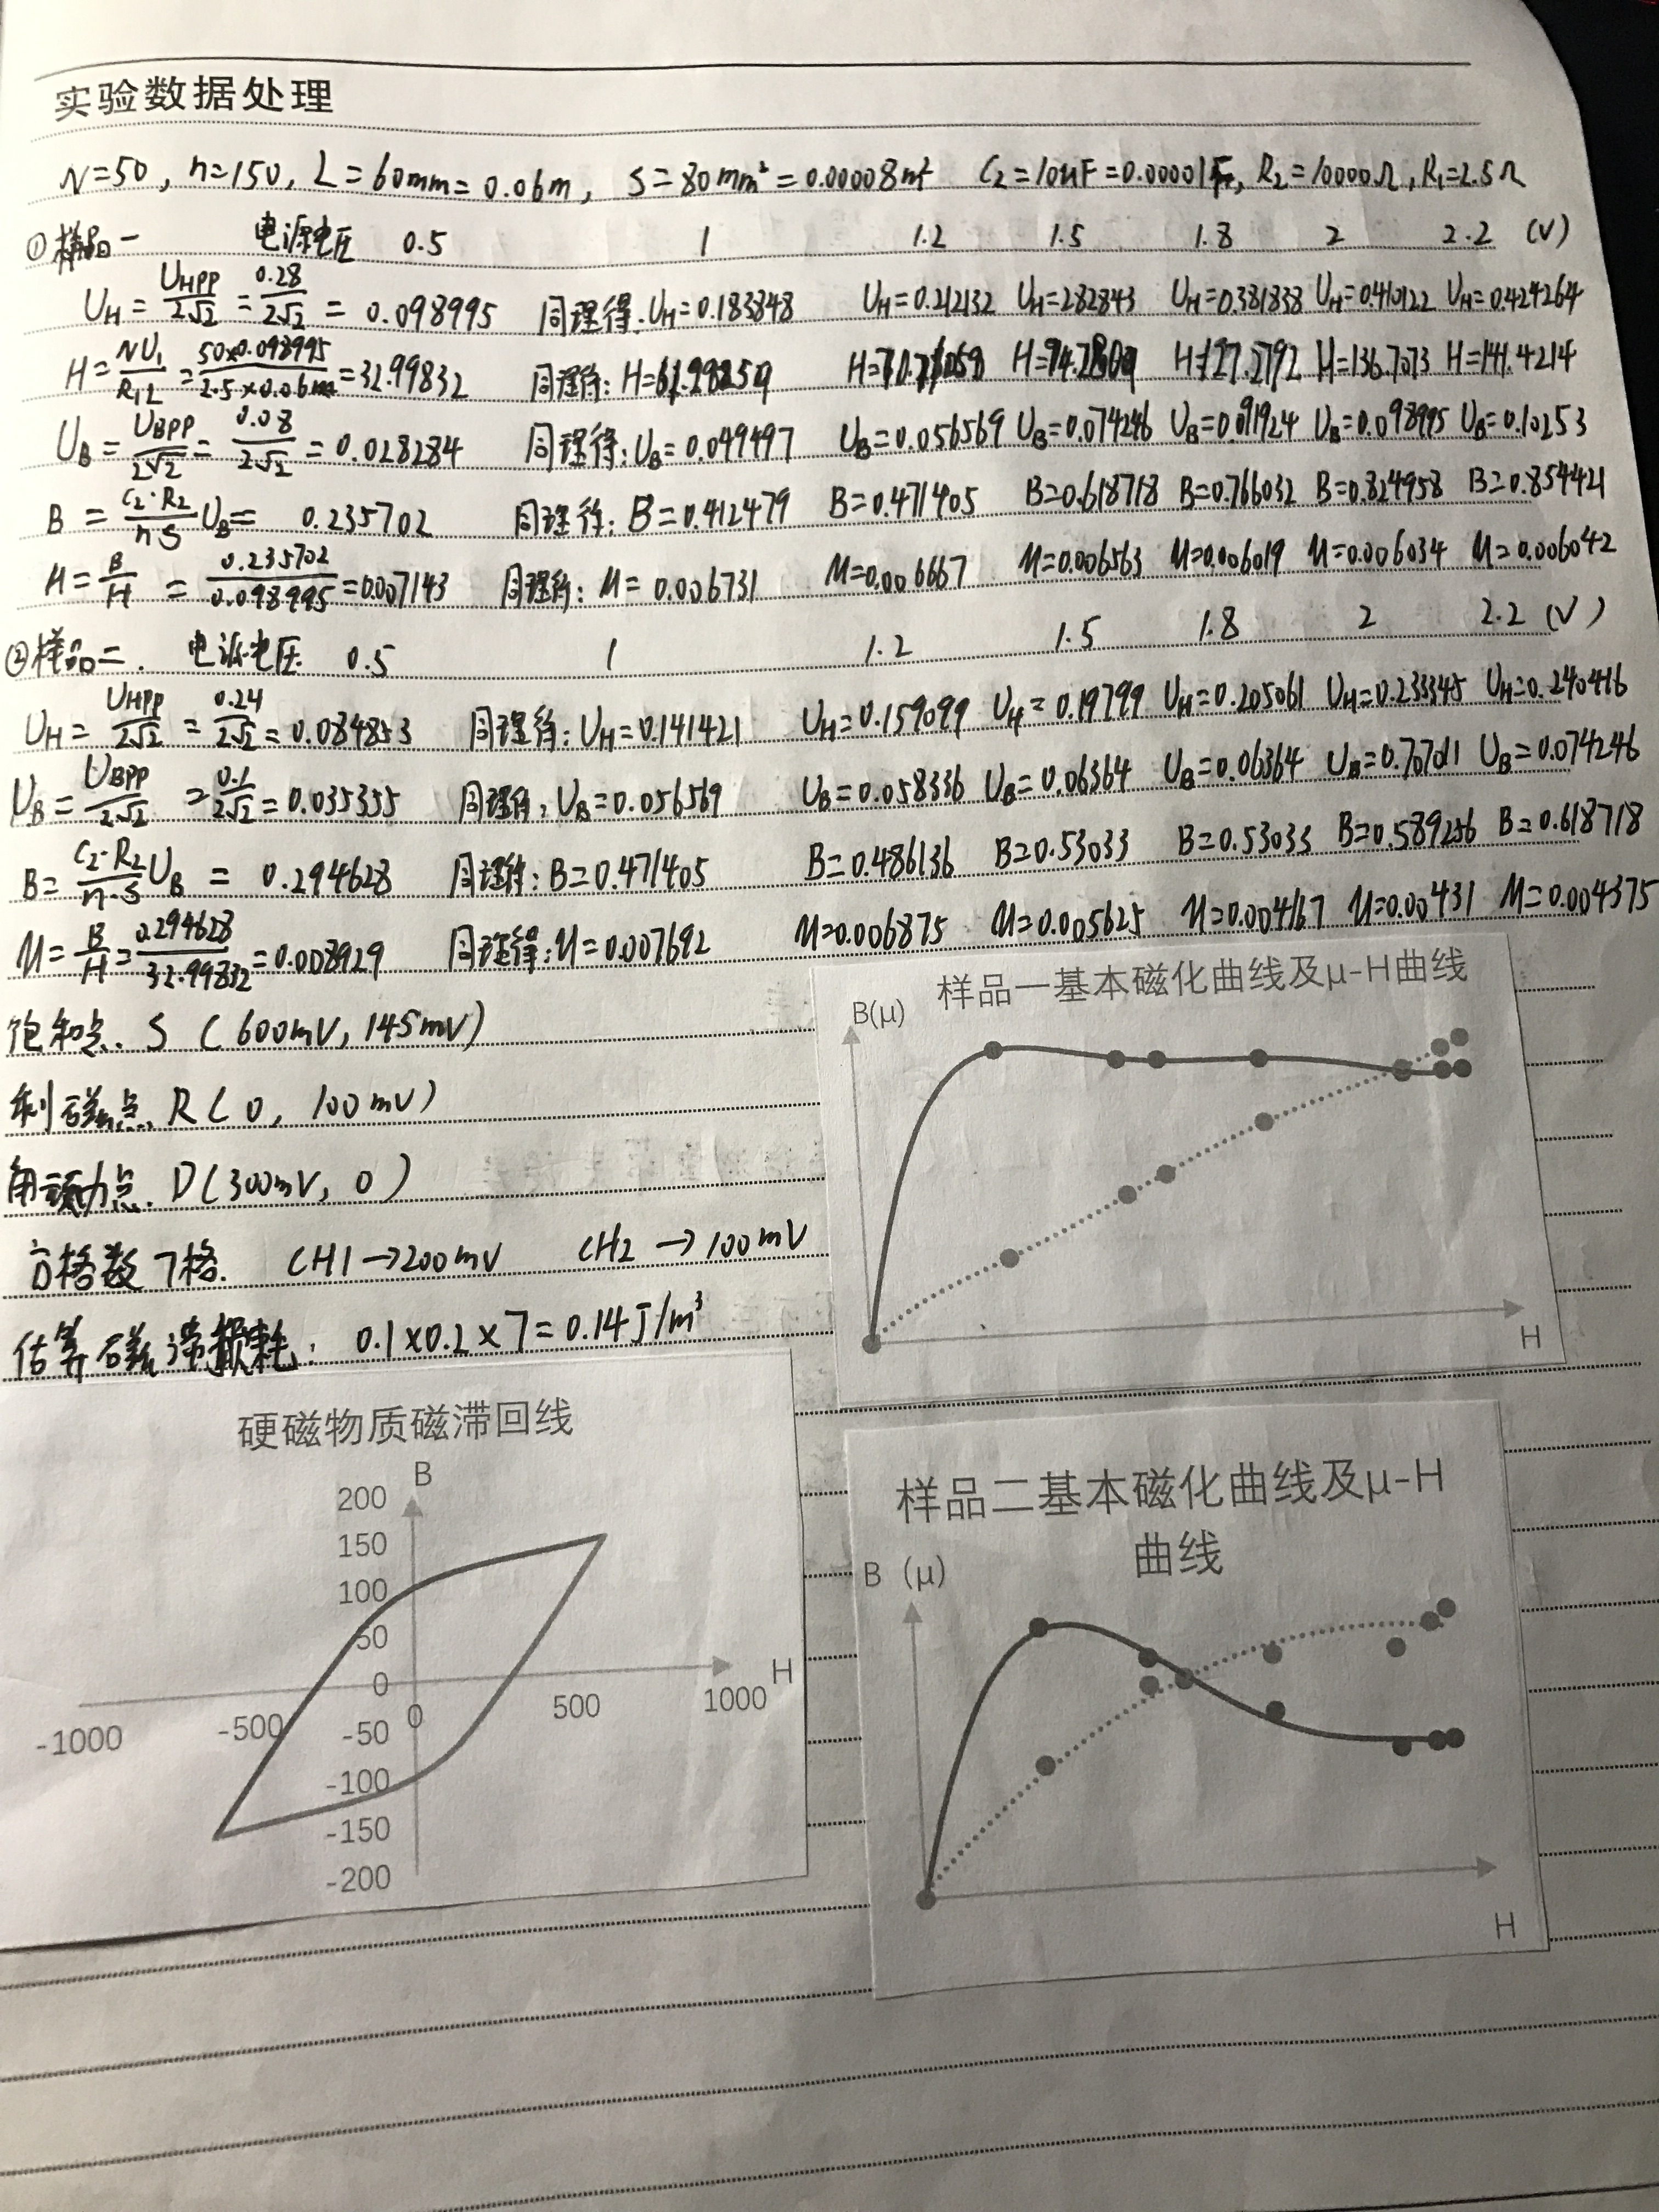 实验数据处理
N=50, n=150, L=60mm=0.06m, S=80mm²=0.00008m² C₂=10uF=0.00001F, R₂=10000Ω, R₁=2.5Ω
①样品一 电源电压 0.5 1 1.2 1.5 1.8 2 2.2 (V)
U_H = U_HPP/2√2 = 0.28/2√2 = 0.098995 同理得: U_H=0.183848 U_H=0.212132 U_H=282843 U_H=0.381838 U_H=0.410122 U_H=0.424264
H = NU₁/R₁L = 50×0.098995/2.5×0.06m = 32.99832 同理得: H=61.28259 H=70.71068 H=94.28090 H=127.2792 H=136.7073 H=141.4214
U_B = U_BPP/2√2 = 0.08/2√2 = 0.028284 同理得: U_B=0.049497 U_B=0.056569 U_B=0.074246 U_B=0.091924 U_B=0.098995 U_B=0.10253
B = C₂·R₂/nS U_B = 0.235702 同理得: B=0.412479 B=0.471405 B=0.618718 B=0.766032 B=0.824958 B=0.854421
μ = B/H = 0.235702/0.098995 = 0.007143 同理得: μ=0.006731 μ=0.006667 μ=0.006563 μ=0.006019 μ=0.006034 μ=0.006042
②样品二. 电源电压 0.5 1 1.2 1.5 1.8 2 2.2 (V)
U_H = U_HPP/2√2 = 0.24/2√2 = 0.084853 同理得: U_H=0.141421 U_H=0.159099 U_H=0.19799 U_H=0.205061 U_H=0.233345 U_H=0.240416
U_B = U_BPP/2√2 = 0.1/2√2 = 0.035355 同理得: U_B=0.056569 U_B=0.058336 U_B=0.06364 U_B=0.06364 U_B=0.70711 U_B=0.074246
B = C₂·R₂/n·S U_B = 0.294628 同理得: B=0.471405 B=0.486136 B=0.53033 B=0.53033 B=0.589256 B=0.618718
μ = B/H = 0.294628/32.99832 = 0.008929 同理得: μ=0.007692 μ=0.006875 μ=0.005625 μ=0.004167 μ=0.00431 μ=0.004375
饱和点. S (600mV, 145mV)
剩磁点. R(0, 100mV)
点. D(300mV, 0)
方格数 7格. CH1→200mV CH2→100mV
估算磁滞损耗: 0.1×0.2×7=0.14J/m³
样品一基本磁化曲线及μ-H曲线
B(μ)
H
硬磁物质磁滞回线
B
200
150
100
50
0
H
-1000 -500 0 500 1000
-50
-100
-150
-200
样品二基本磁化曲线及μ-H
曲线
B (μ)
H